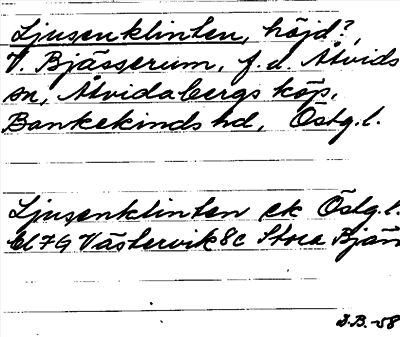 Ljusenklinten, höjd?,
V. Bjässerum, f.d. Åtvids
sn, Åtvidabergs köp,
Bankekinds hd, Östg.l.
Ljusenklinten ek Östg.l.
bl 7G Västervik 8c Stora Bjän
J.B.-58